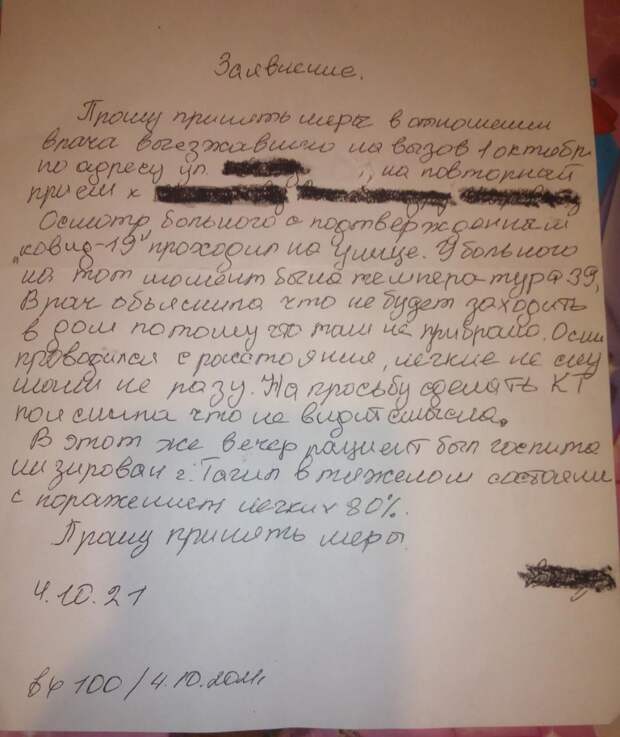 Заявление.
Прошу принять меры в отношении
врача выезжавшего на вызов 1 октябр
по адресу ул. , на повторный
прием к
Осмотр больного с подтвержденным
"ковид-19" проходил на улице. У больного
на тот момент была температура 39,
Врач объяснила что не будет заходить
в дом потому что там не прибрано. Осм
проводился с расстояния, легкие не слу
шали не разу. На просьбу сделать КТ
пояснила что не видит смысла.
В этот же вечер пациент был госпита
лизирован г. Тагил в тяжелом состоян
с поражением легких 80%.
Прошу принять меры
4.10.21
100 / 4.10.2021г